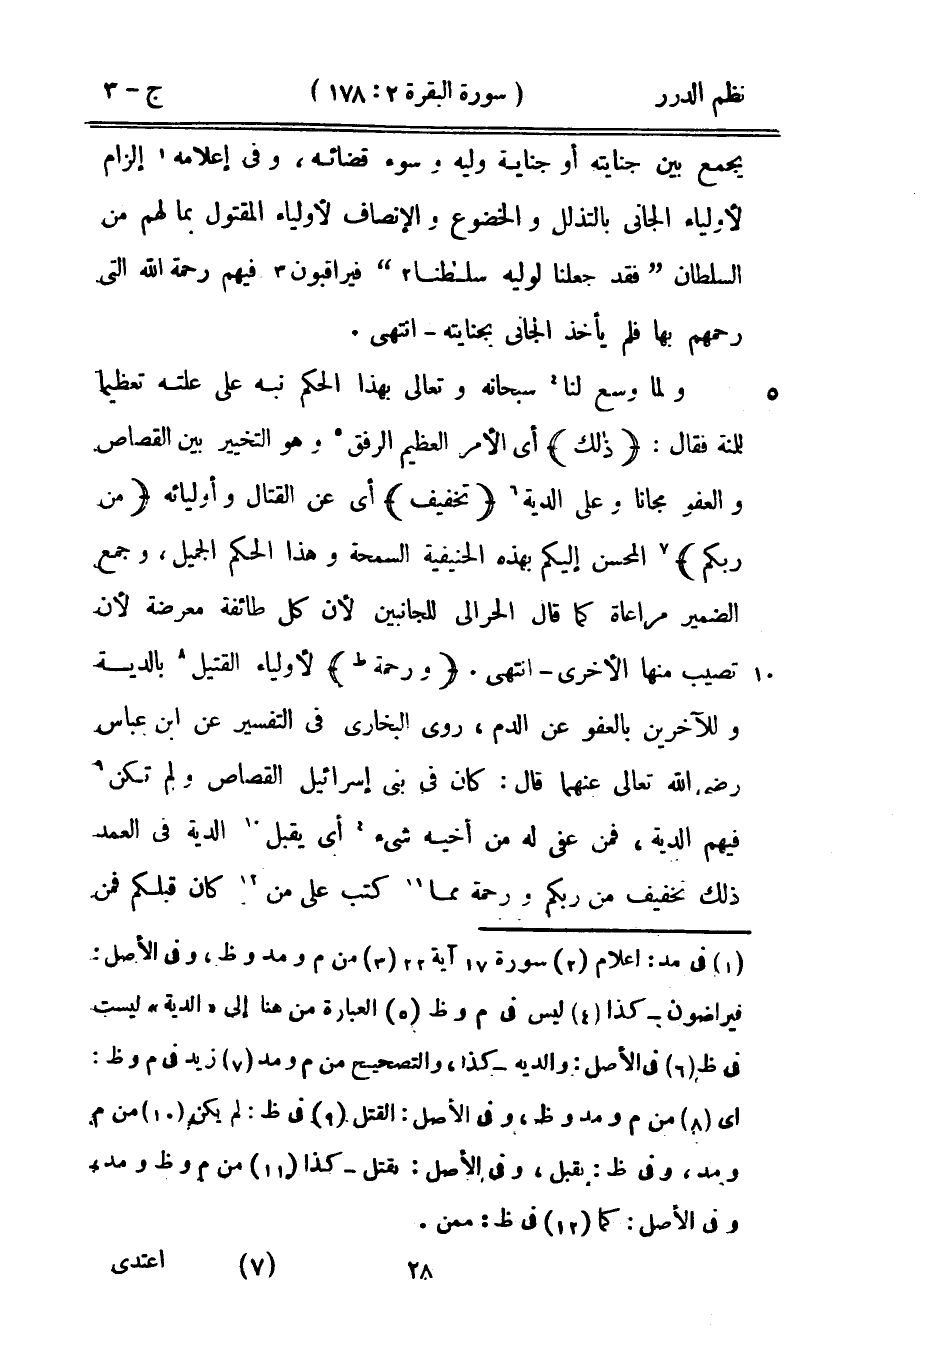 نظم الدرر ( سورة البقرة ٢ : ١٧٨ ) ج - ٣
يجمع بين جنايته أو جناية وليه و سوء قضائه ، و فى إعلامه ١ إلزام
لأولياء الجانى بالتذلل و الخضوع و الإنصاف لأولياء المقتول بما لهم من
السلطان ” فقد جعلنا لوليه سلطنا٢ “ فيراقبون ٣ فيهم رحمة الله التى
رحمهم بها فلم يأخذ الجانى بجنايته - انتهى .
٥ و لما وسع لنا ٤ سبحانه و تعالى بهذا الحكم نبه على علته تعظيما
للمنة فقال : ﴿ ذٰلك ﴾ أى الأمر العظيم الرفق ٥ و هو التخيير بين القصاص
و العفو مجانا و على الدية ٦ ﴿ تخفيف ﴾ أى عن القتال و أوليائه ﴿ من
ربكم ﴾ ٧ المحسن إليكم بهذه الحنيفية السمحة و هذا الحكم الجميل ، و جمع
الضمير مراعاة كما قال الحرالى للجانبين لأن كل طائفة معرضة لأن
١٠ تصيب منها الأخرى - انتهى . ﴿ و رحمة ط ﴾ لأولياء القتيل ٨ بالدية
و للآخرين بالعفو عن الدم ، روى البخارى فى التفسير عن ابن عباس
رضى الله تعالى عنهما قال : كان فى بنى إسرائيل القصاص و لم تكن ٩
فيهم الدية ، فمن عفى له من أخيه شىء ٤ أى يقبل ١٠ الدية فى العمد
ذلك تخفيف من ربكم و رحمة مما ١١ كتب على من ١٢ كان قبلكم فمن
(١) فى مد : اعلام (٢) سورة ١٧ آية ٢٢ (٣) من م و مد و ظ ، و فى الأصل :
فيراضون - كذا (٤) ليس فى م و ظ (٥) العبارة من هنا إلى « الدية » ليست
فى ظ (٦) فى الأصل : والديه - كذا ، والتصحيح من م و مد (٧) زيد فى م و ظ :
اى (٨) من م و مد و ظ ، و فى الأصل : القتل (٩) فى ظ : لم يكن (١٠) من م
و مد ، و فى ظ : بقبل ، و فى الأصل : بقتل - كذا (١١) من م و ظ و مد ،
و فى الأصل : كما (١٢) فى ظ : ممن .
٢٨ (٧) اعتدى